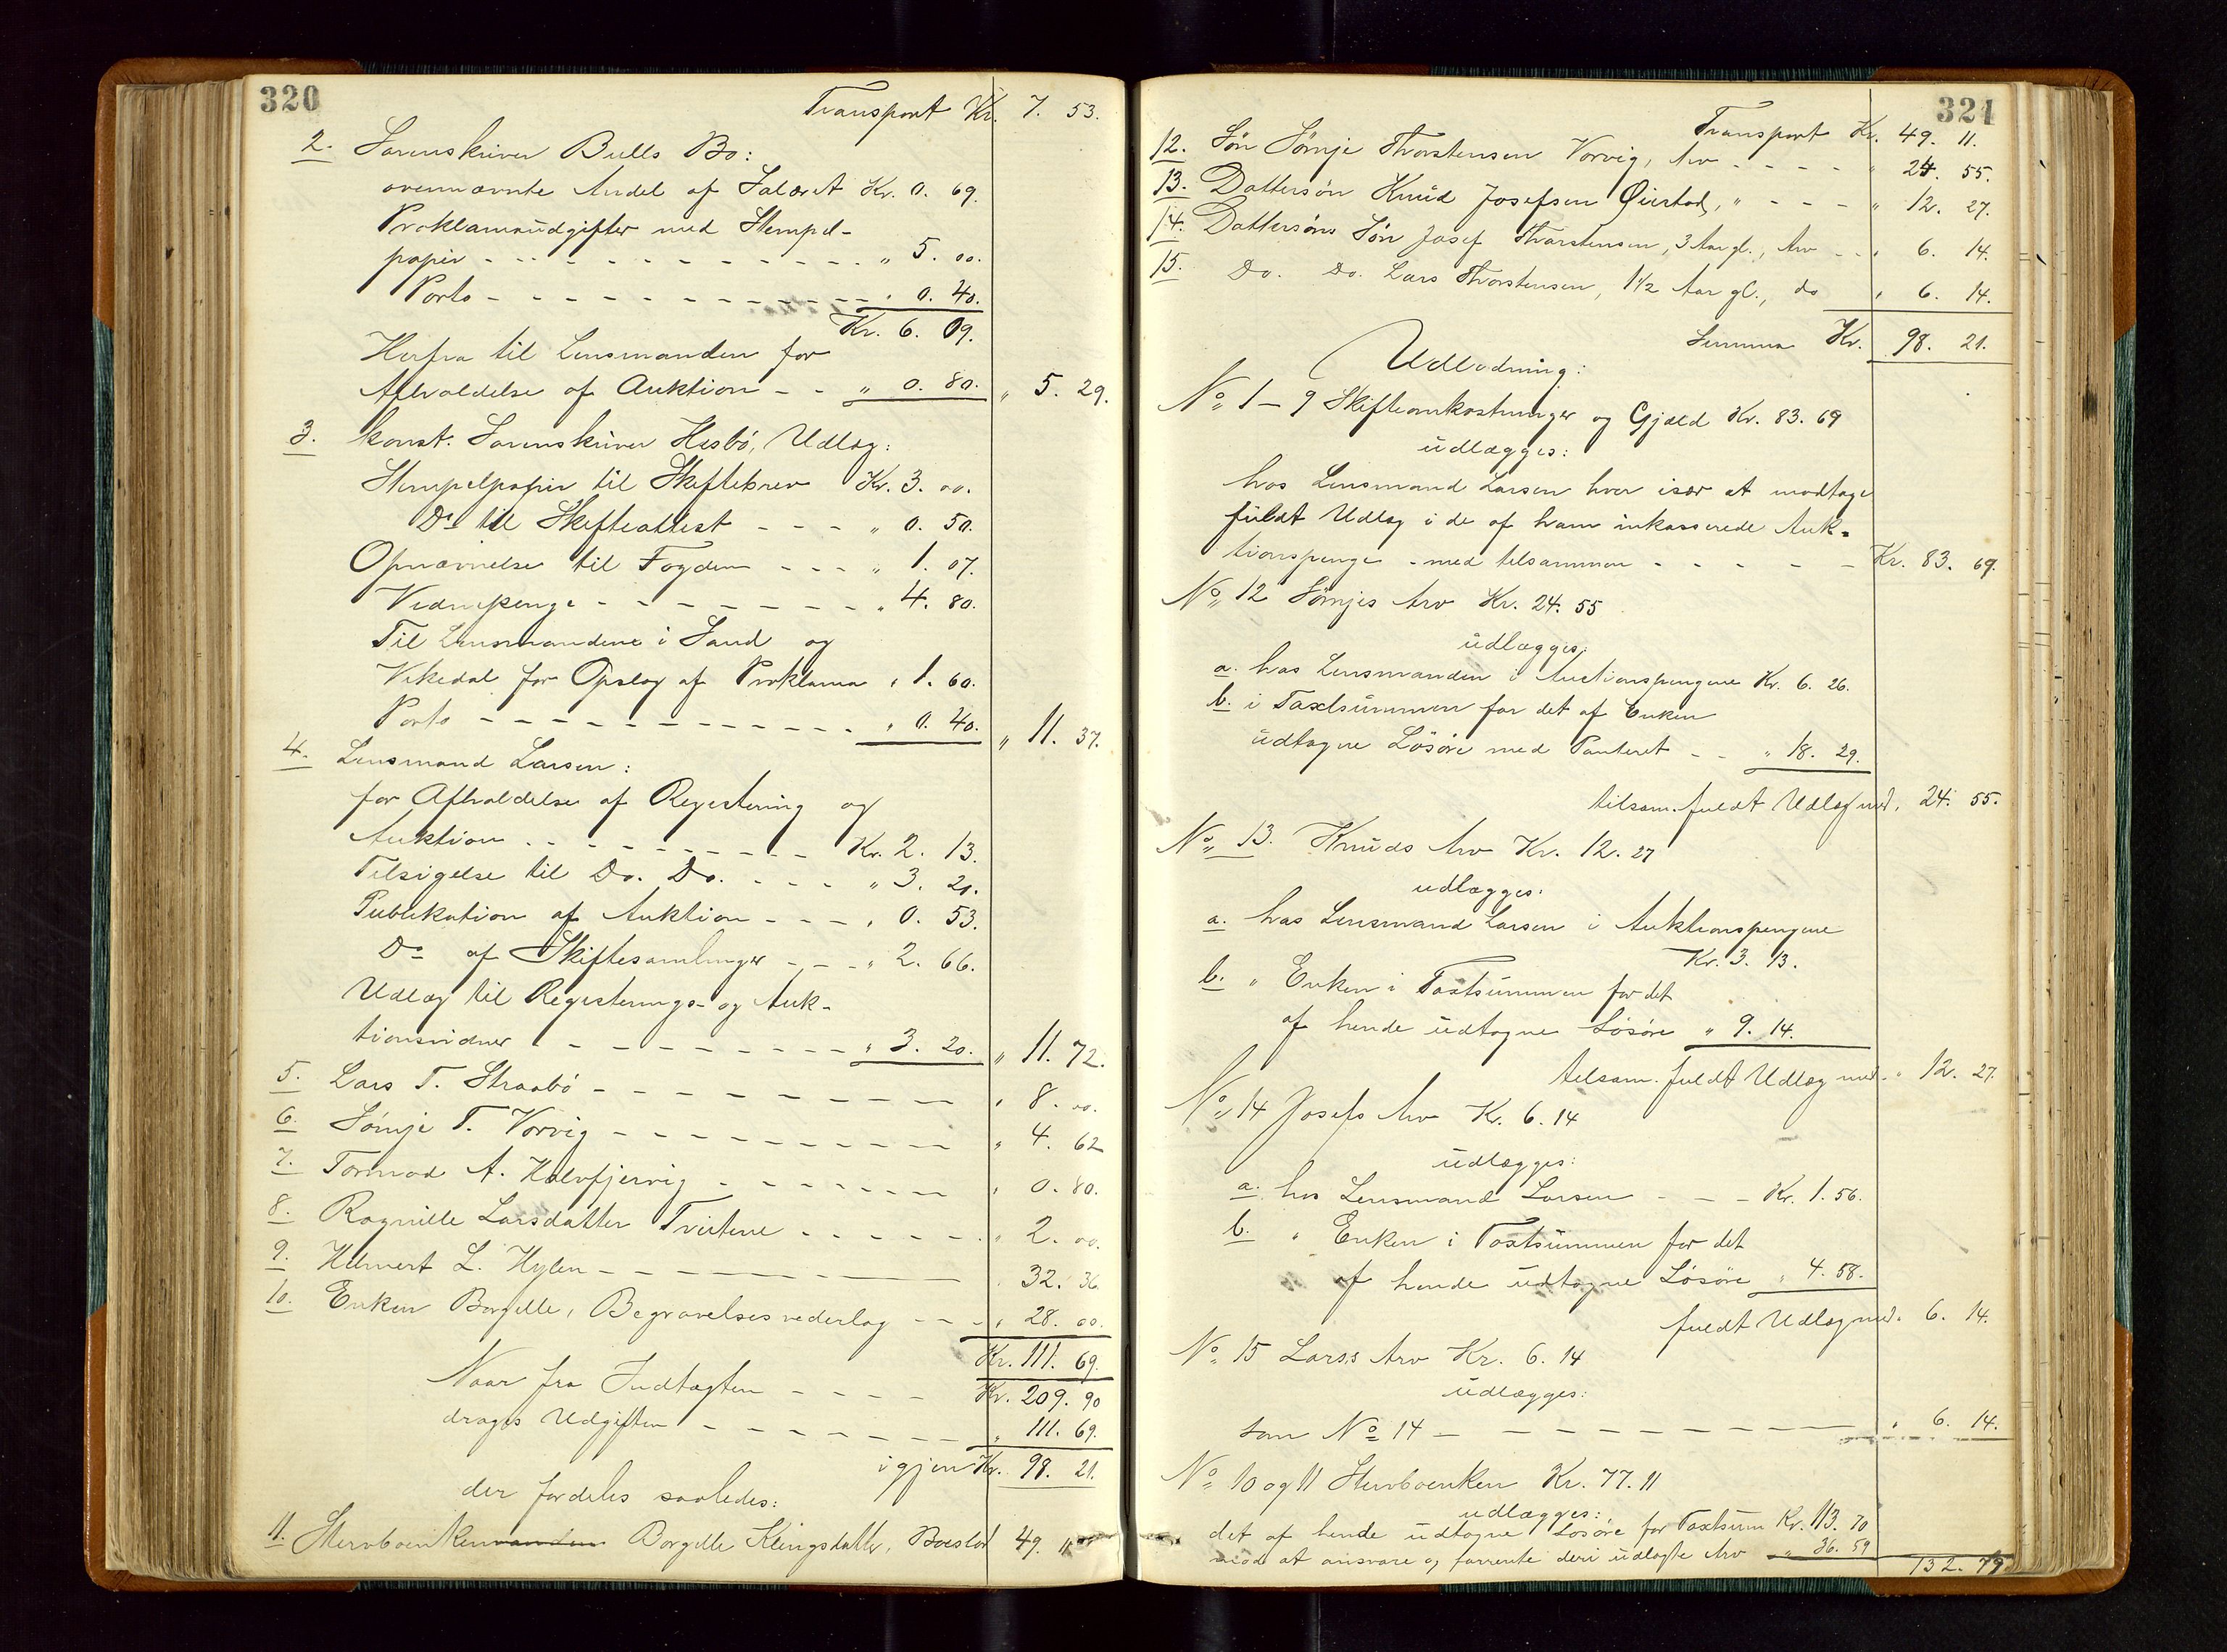 320
Transport Kr. 7. 53.
2. Sorenskriver Bulls Bo:
ovennævnte Andel af Salæret Kr. 0. 69.
Proklamaudgifter med Stempel-
papir - - - - - - - - - - - „ 5. 00.
Porto - - - - - - - - - - - „ 0. 40.
Kr. 6. 09.
Herfra til Lensmanden for
Afholdelse af Auktion - - „ 0. 80. „ 5. 29.
3. konst. Sorenskriver Hesbö, Udlæg:
Stempelpapir til Skiftebrev Kr. 3. 00.
Do til Skifteattest - - - „ 0. 50.
Opnævnelse til Fogden - - - „ 1. 07.
Vidnepenge - - - - - - - - „ 4. 80.
Til Lensmandene i Sand og
Vikedal for Opslag af Proklama „ 1. 60.
Porto - - - - - - - - - - - „ 0. 40. „ 11. 37.
4. Lensmand Larsen:
for Afholdelse af Registering og
Auktion - - - - - - - - - Kr. 2. 13.
Tilsigelse til Do. Do. - - - - „ 3. 20.
Publikation af Auktion - - - „ 0. 53.
Do af Skiftesamlinger - - - „ 2. 66.
Udlæg til Registerings- og Auk-
tionsvidner - - - - - - - - „ 3. 20. „ 11. 72.
5. Lars T. Straabö - - - - - - - - - „ 8. 00.
6. Sömje T. Vorvig - - - - - - - - - „ 4. 62
7. Tormod A. - - - - - - - „ 0. 80.
8. Ragnille Larsdatter Tveitene - - - - - - „ 2. 00.
9. L. Hylen - - - - - „ 32. 36
10. Enken Borgille, Begravelsesvederlag - - - „ 28. 00.
Kr. 111. 69.
Naar fra Indtægten - - - - Kr. 209. 90
drages Udgiften - - - - - - - „ 111. 69.
igjen Kr. 98. 21.
der fordeles saaledes:
11. Stervboenken Borgille 49. 11
321
Transport Kr. 49. 11.
12. Sön Sömje Thorstensen Vorvig, Arv - - - - - „ 24. 55.
13. Dattersön Knud Josefsen Øiestad, „ - - - - „ 12. 27.
14. Dattersöns Sön Josef Thorstensen, 3 Aar gl., Arv - - „ 6. 14.
15. Do. Do. Lars Thorstensen, 1 1/2 Aar gl., do „ 6. 14.
Summa Kr. 98. 21.
Udlodning:
No. 1 - 9 Skifteomkostninger og Gjæld Kr. 83. 69
udlægges:
hos Lensmand Larsen hver især at modtage
fuldt Udlæg i de af ham inkasserede Auk-
tionspenge - med tilsammen - - - - - Kr. 83. 69.
No. 12 Sömjes Arv Kr. 24. 55
udlægges:
a. hos Lensmanden i Auctionspengene Kr. 6. 26.
b. i Taxtsummen for det af Enken
udtagne Lösöre med Panteret - - „ 18. 29.
tilsam. fuldt Udlæg med. 24. 55.
No. 13. Knuds Arv Kr. 12. 27
udlægges:
a. hos Lensmand Larsen i Auktionspengene
Kr. 3. 13.
b. „ Enken i Taxtsummen for det
af hende udtagne Lösöre „ 9. 14.
tilsam. fuldt Udlæg med - „ 12. 27.
No. 14 Josefs Arv Kr. 6. 14
udlægges:
a. hos Lensmand Larsen - - - Kr. 1. 56.
b. „ Enken i Taxtsummen for det
af hende udtagne Lösöre „ 4. 58.
fuldt Udlæg med. 6. 14.
No. 15 Lars's Arv Kr. 6. 14
udlægges:
som No 14 - - - - - - - - - - „ 6. 14.
No. 10 og 11 Stervboenken Kr. 77. 11
udlægges:
det af hende udtagne Lösöre for Taxtsum Kr. 113. 70
mod at ansvare og forrente deri udlagte Arv - „ 36. 59
132. 79